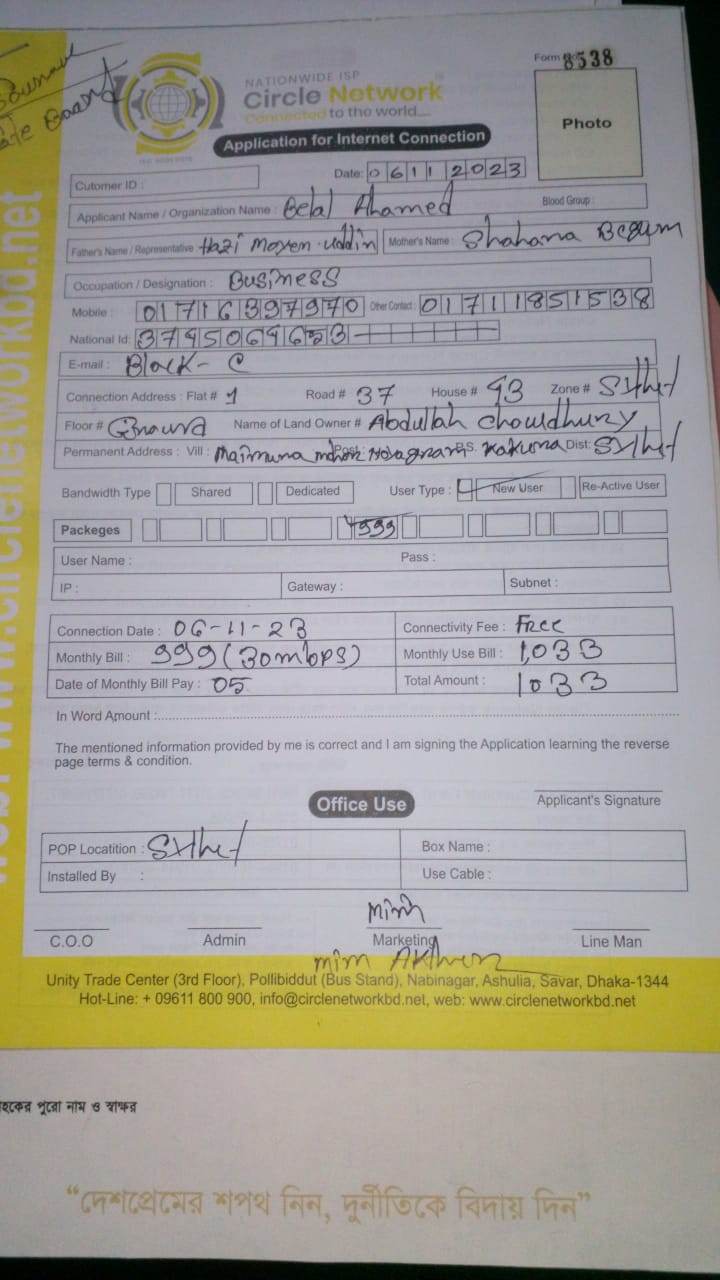 Board
Form No: 8538
NATIONWIDE ISP
Circle Network
Connected to the world....
Application for Internet Connection
Photo
Cutomer ID :
Date: 06112023
Applicant Name / Organization Name : Belal Ahamed Blood Group :
Father's Name / Representative : Hazi Moyen Uddin Mother's Name : Shahana Begum
Occupation / Designation : Business
Mobile : 01716397970 Other Contact : 01711851538
National Id:
E-mail : Block-C
Connection Address : Flat # 1 Road # 37 House # 93 Zone # Sylhet
Floor # Ground Name of Land Owner # Abdullah Chowdhury
Permanent Address : Vill : Maimuna Post: P.S. Dist: Sylhet
Bandwidth Type Shared Dedicated User Type : New User Re-Active User
Packeges 999
User Name : Pass :
IP : Gateway : Subnet :
Connection Date : 06-11-23 Connectivity Fee : Free
Monthly Bill : 999 (30mbps) Monthly Use Bill : 1,033
Date of Monthly Bill Pay : 05 Total Amount : 1033
In Word Amount :
The mentioned information provided by me is correct and I am signing the Application learning the reverse
page terms & condition.
Applicant's Signature
Office Use
POP Locatition : Sylhet Box Name :
Installed By : Use Cable :
Mim
C.O.O Admin Marketing Line Man
Mim Akther
Unity Trade Center (3rd Floor), Pollibiddut (Bus Stand), Nabinagar, Ashulia, Savar, Dhaka-1344
Hot-Line: + 09611 800 900, info@circlenetworkbd.net, web: www.circlenetworkbd.net
পুরো নাম ও স্বাক্ষর
“দেশপ্রেমের শপথ নিন, দুর্নীতিকে বিদায় দিন”